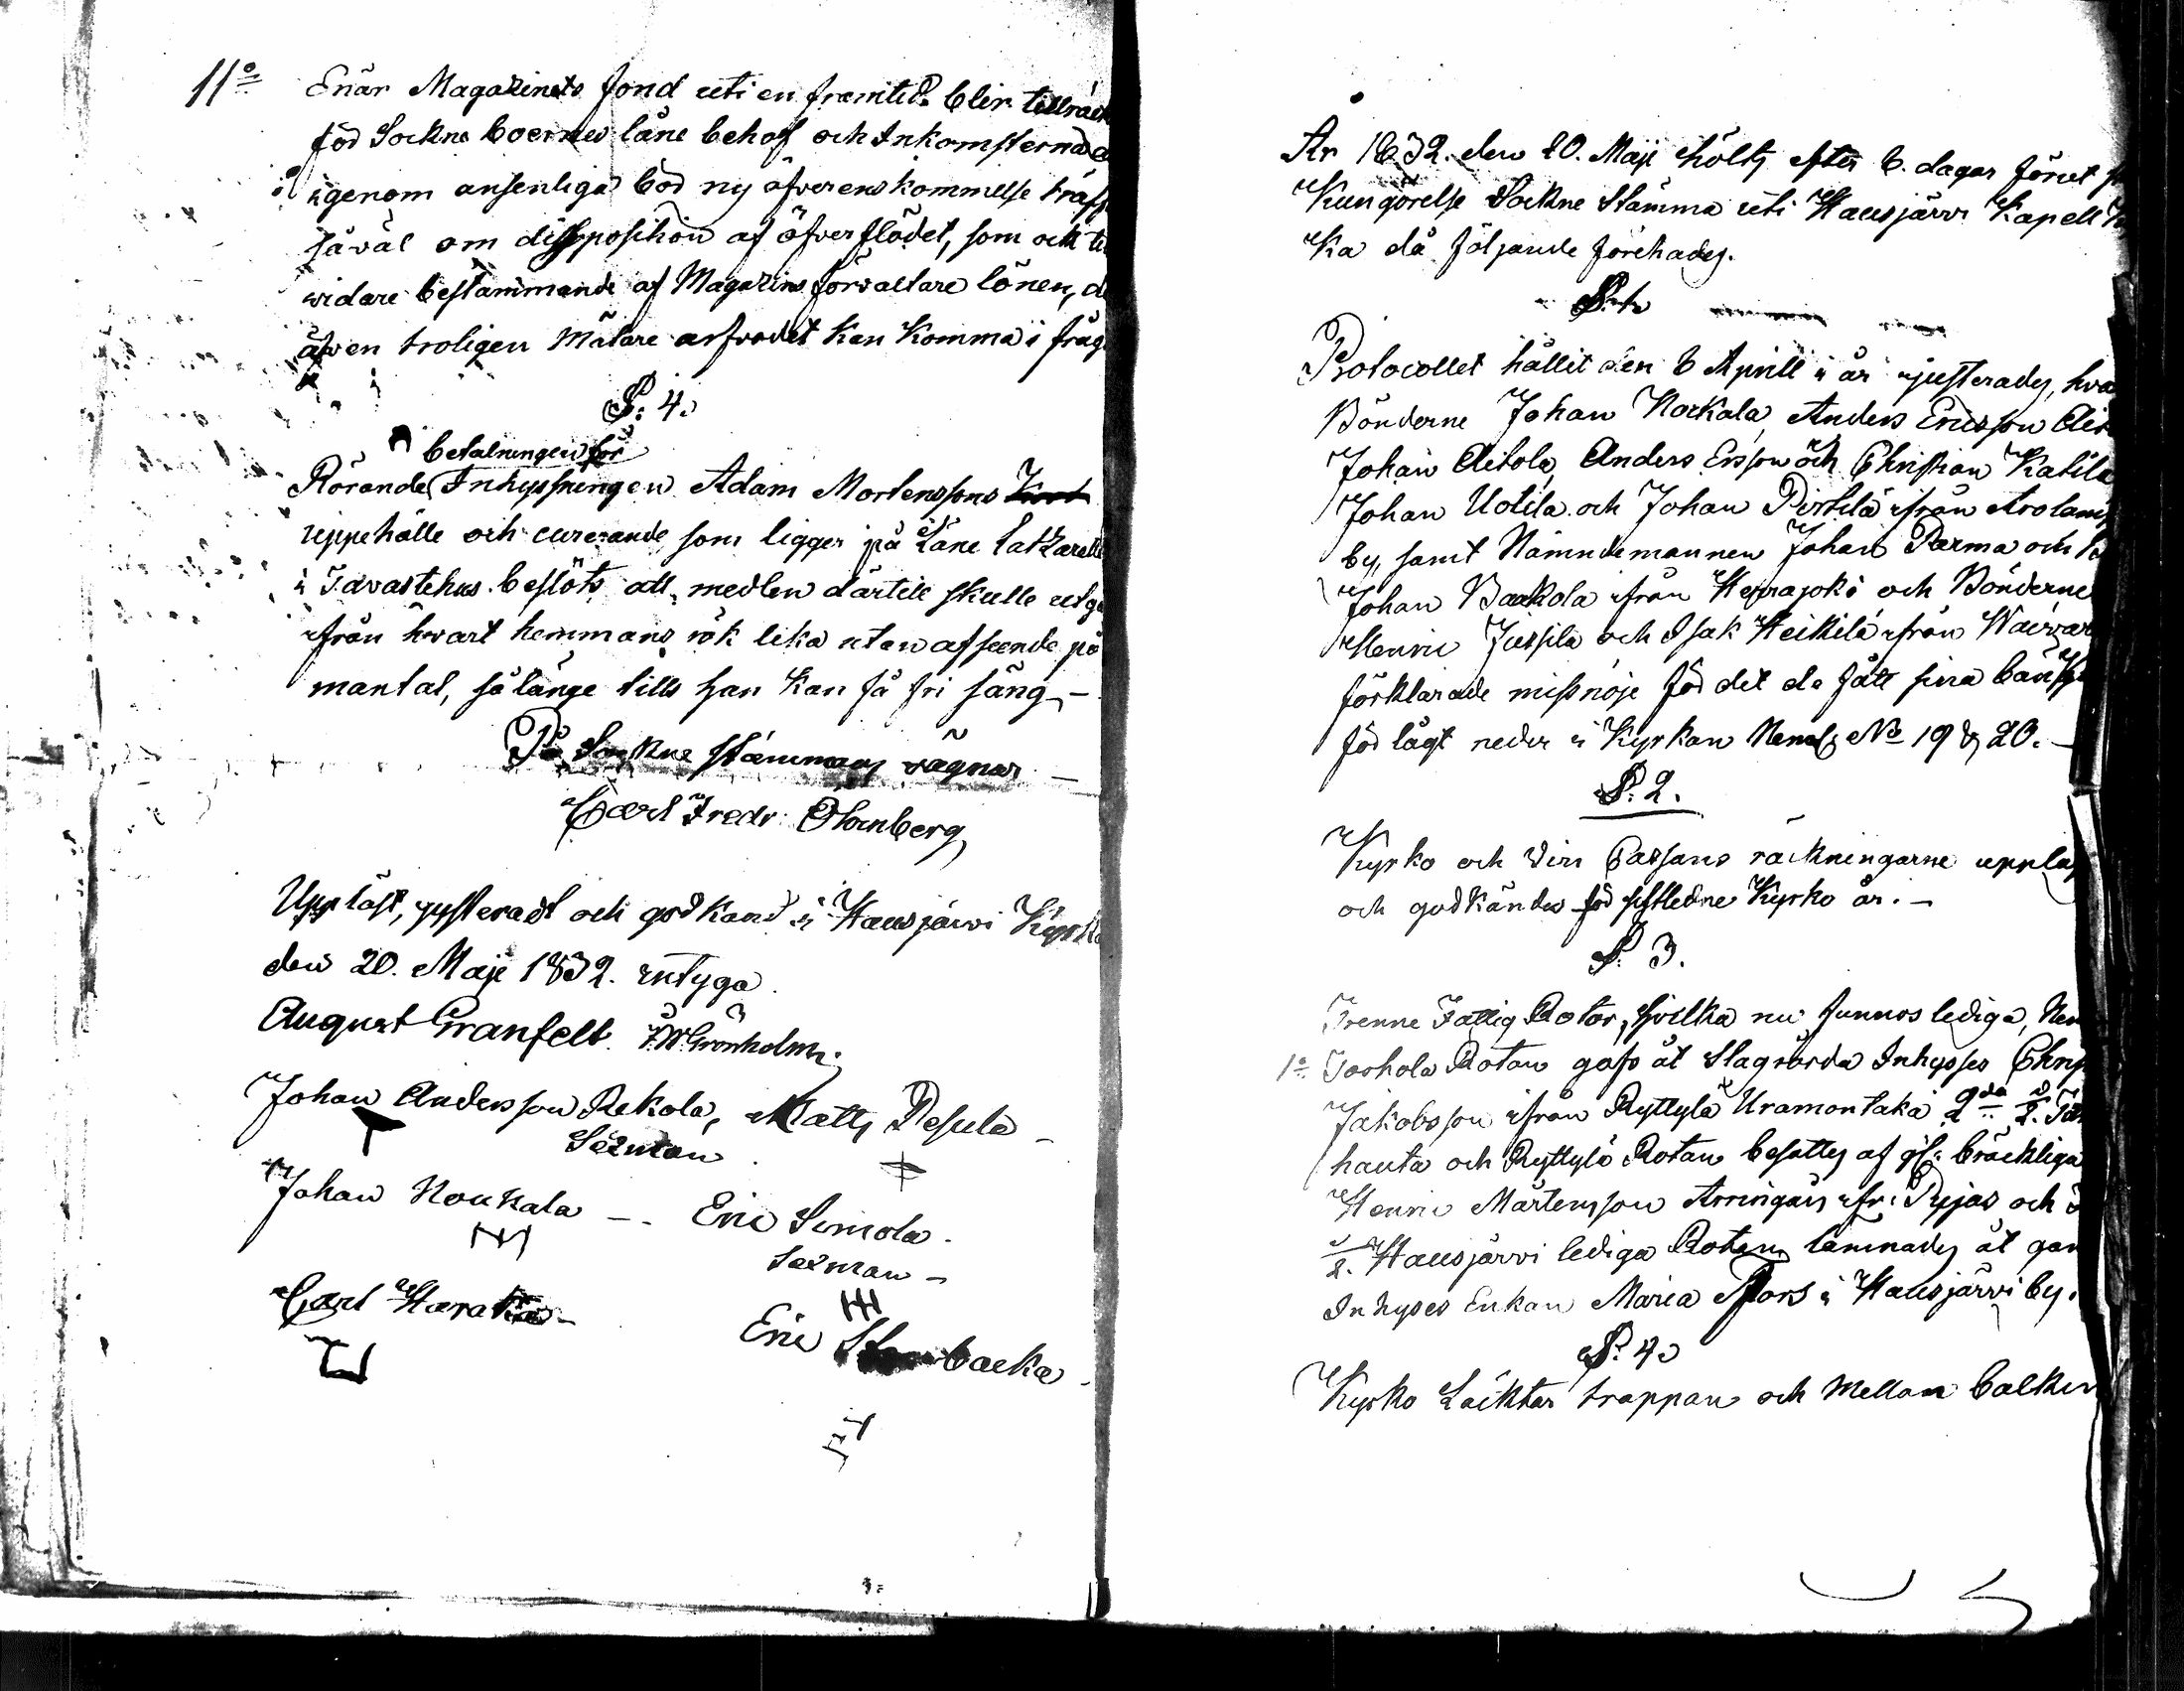 11o Enär Magazinets fond uti en framtid blir tillräck
för Sockne boernes låne behof och Inkomsterna
igenom ansenliga bör ny öfverenskommelse träff
såväl om disposition af öfverflödet, som ock
vidare bestämmande af Magazins förvaltare lönen, d
äfven troligen Mätare arfvodet kan komma i fråg
§: 4.
betalningen för
Rörande Inhysningen Adam Mortenssons
uppehälle och curerande som ligger på Läne Latzarette
i Tavastehus beslöts att medlen därtill skulle utg
från hvart hemmans rök lika utan afseende på
mantal, så länge tills han kan få fri säng, —
På Sockne stämmans vägnar —
Carl Fredr: Ohlnberg
Uppläst, justeradt och godkänd i Hausjärvi Kyrka
den 20. Maji 1832. intyga
August Granfelt. F.W. Grönholm.
Johan Andersson Rekola, Matts Pesula —
Sexman
Johan Noukala —. Eric Simola.
Sexman —
Carl Haraka —
Eric backa —
År 1832. den 20. Maji hölts efter 6. dagar förut
Kungörelse Sockne Stämma uti Hausjärvi Kapell
ka då följande förehades.
§. 1.
Protocollet hållit den 6 Aprill i år justerades, hva
Bönderne Johan Norkala, Anders Ericsson
Johan Aitola, Anders Ersson och Christian Katila
Johan Uotila och Johan Pirttilä ifrån Arolam
by, samt Nämndemannen Johan Parma och
Johan Backola ifrån Herajoki och Bönderne
Henric Jussila och Isak Heikilä ifrån
förklarade missnöje för det de fått sina bänk
för lågt neder i Kyrkan Neml. No 19 & 20. —
§. 2.
Kyrko och Vin Cassans räckningarne uppläs
och godkändes för sistledne Kyrko år. —
§. 3.
Trenne Fattig Rotar, hvilka nu funnos lediga, Nem
1o Torhola Rotan gafs åt Slagrörda Inhyses Chri
Jakobsson ifrån Ryttylä Uramontaka 2da
hauta och Ryttylä Rotan besattes af gl. bräckliga
Henric Mårtensson ifr: Pijas och
Hausjärvi lediga Rotan lämnades åt gam
Inhyses Enkan Maria Fors i Hausjärvi by.
§. 4.
Kyrko Läktar trappan och Mellan balken